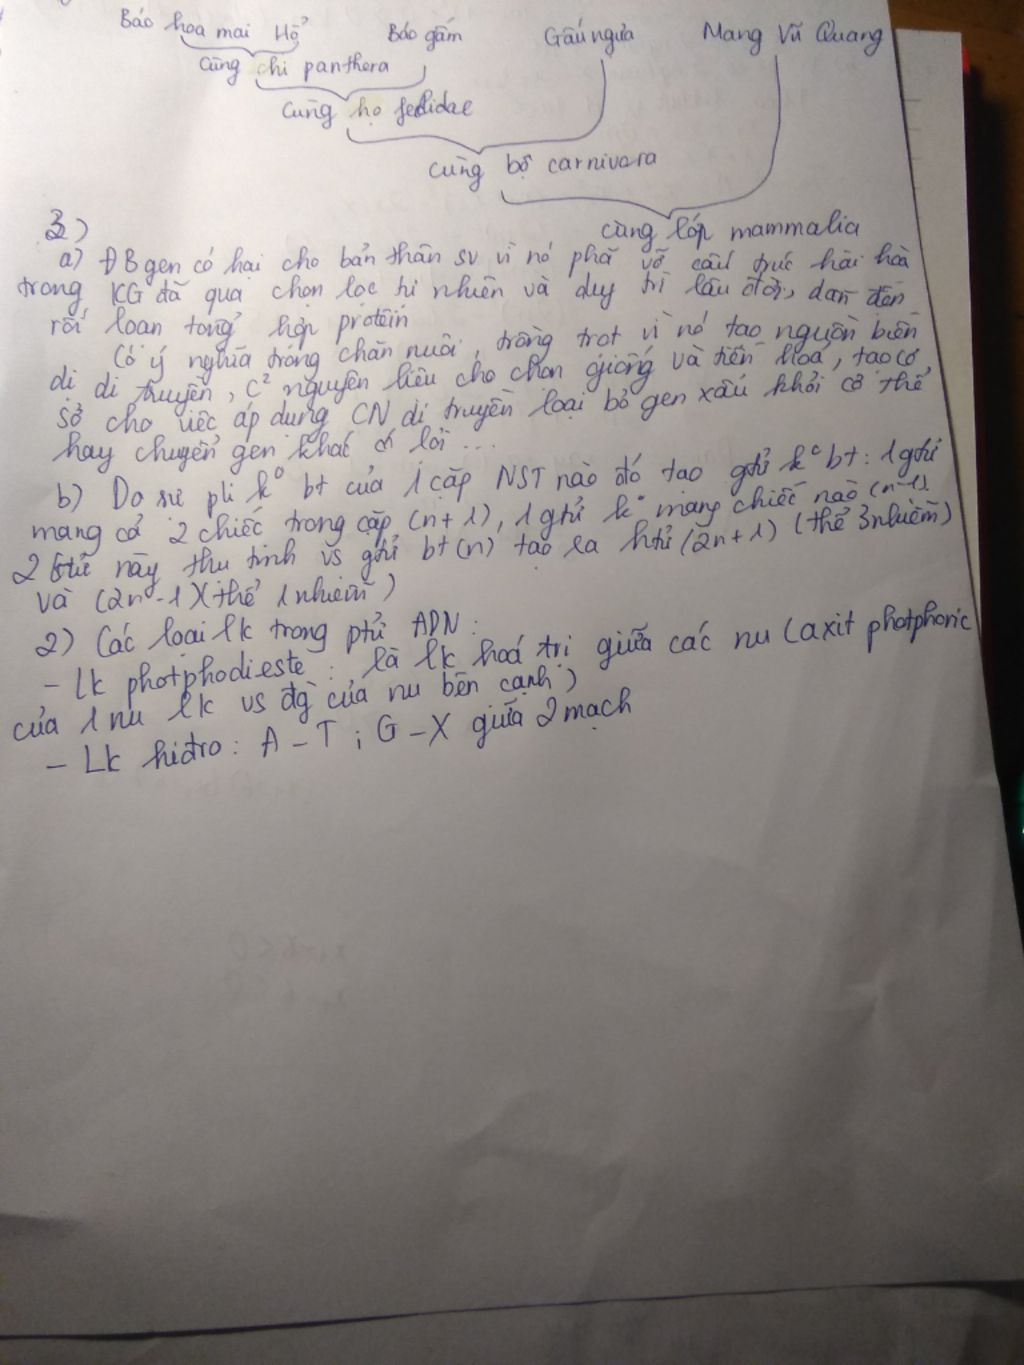 Báo hoa mai Hổ Báo gấm Gấu ngựa Mang Vũ Quang
Cùng chi panthera
Cùng họ felidae
cùng bộ carnivora
cùng lớp mammalia
3)
a) ĐB gen có hại cho bản thân sv vì nó phá vỡ cấu trúc hài hoà
trong KG đã qua chọn lọc tự nhiên và duy trì lâu đời, dẫn đến
rối loạn tổng hợp protein
Có ý nghĩa trong chăn nuôi, trồng trọt vì nó tạo nguồn biến
dị di truyền, c² nguyên liệu cho chọn giống và tiến hoá, tạo cơ
sở cho việc áp dụng CN di truyền loại bỏ gen xấu khỏi cơ thể
hay chuyển gen khác có lợi ...
b) Do sự pli k⁰ bt của 1 cặp NST nào đó tạo gtử k⁰ bt: 1 gtử
mang cả 2 chiếc trong cặp (n+1), 1 gtử k⁰ mang chiếc nào (n-1).
2 gtử này thụ tinh vs gtử bt (n) tạo ra htử (2n+1) (thể 3 nhiễm)
và (2n-1) (thể 1 nhiễm)
2) Các loại lk trong ptử ADN:
- Lk photphodieste: là lk hoá trị giữa các nu (axit photphoric
của 1 nu lk vs đg của nu bên cạnh)
- Lk hiđro: A - T ; G - X giữa 2 mạch